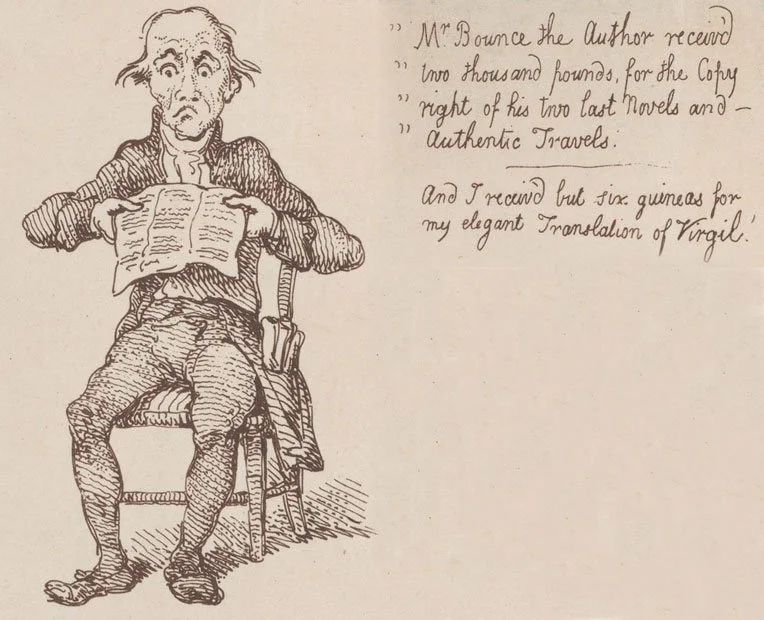 " Mr Bounce the Author receiv'd
" two thousand pounds, for the Copy
" right of his two last Novels and —
" Authentic Travels.
And I receiv'd but six guineas for
my elegant Translation of Virgil!